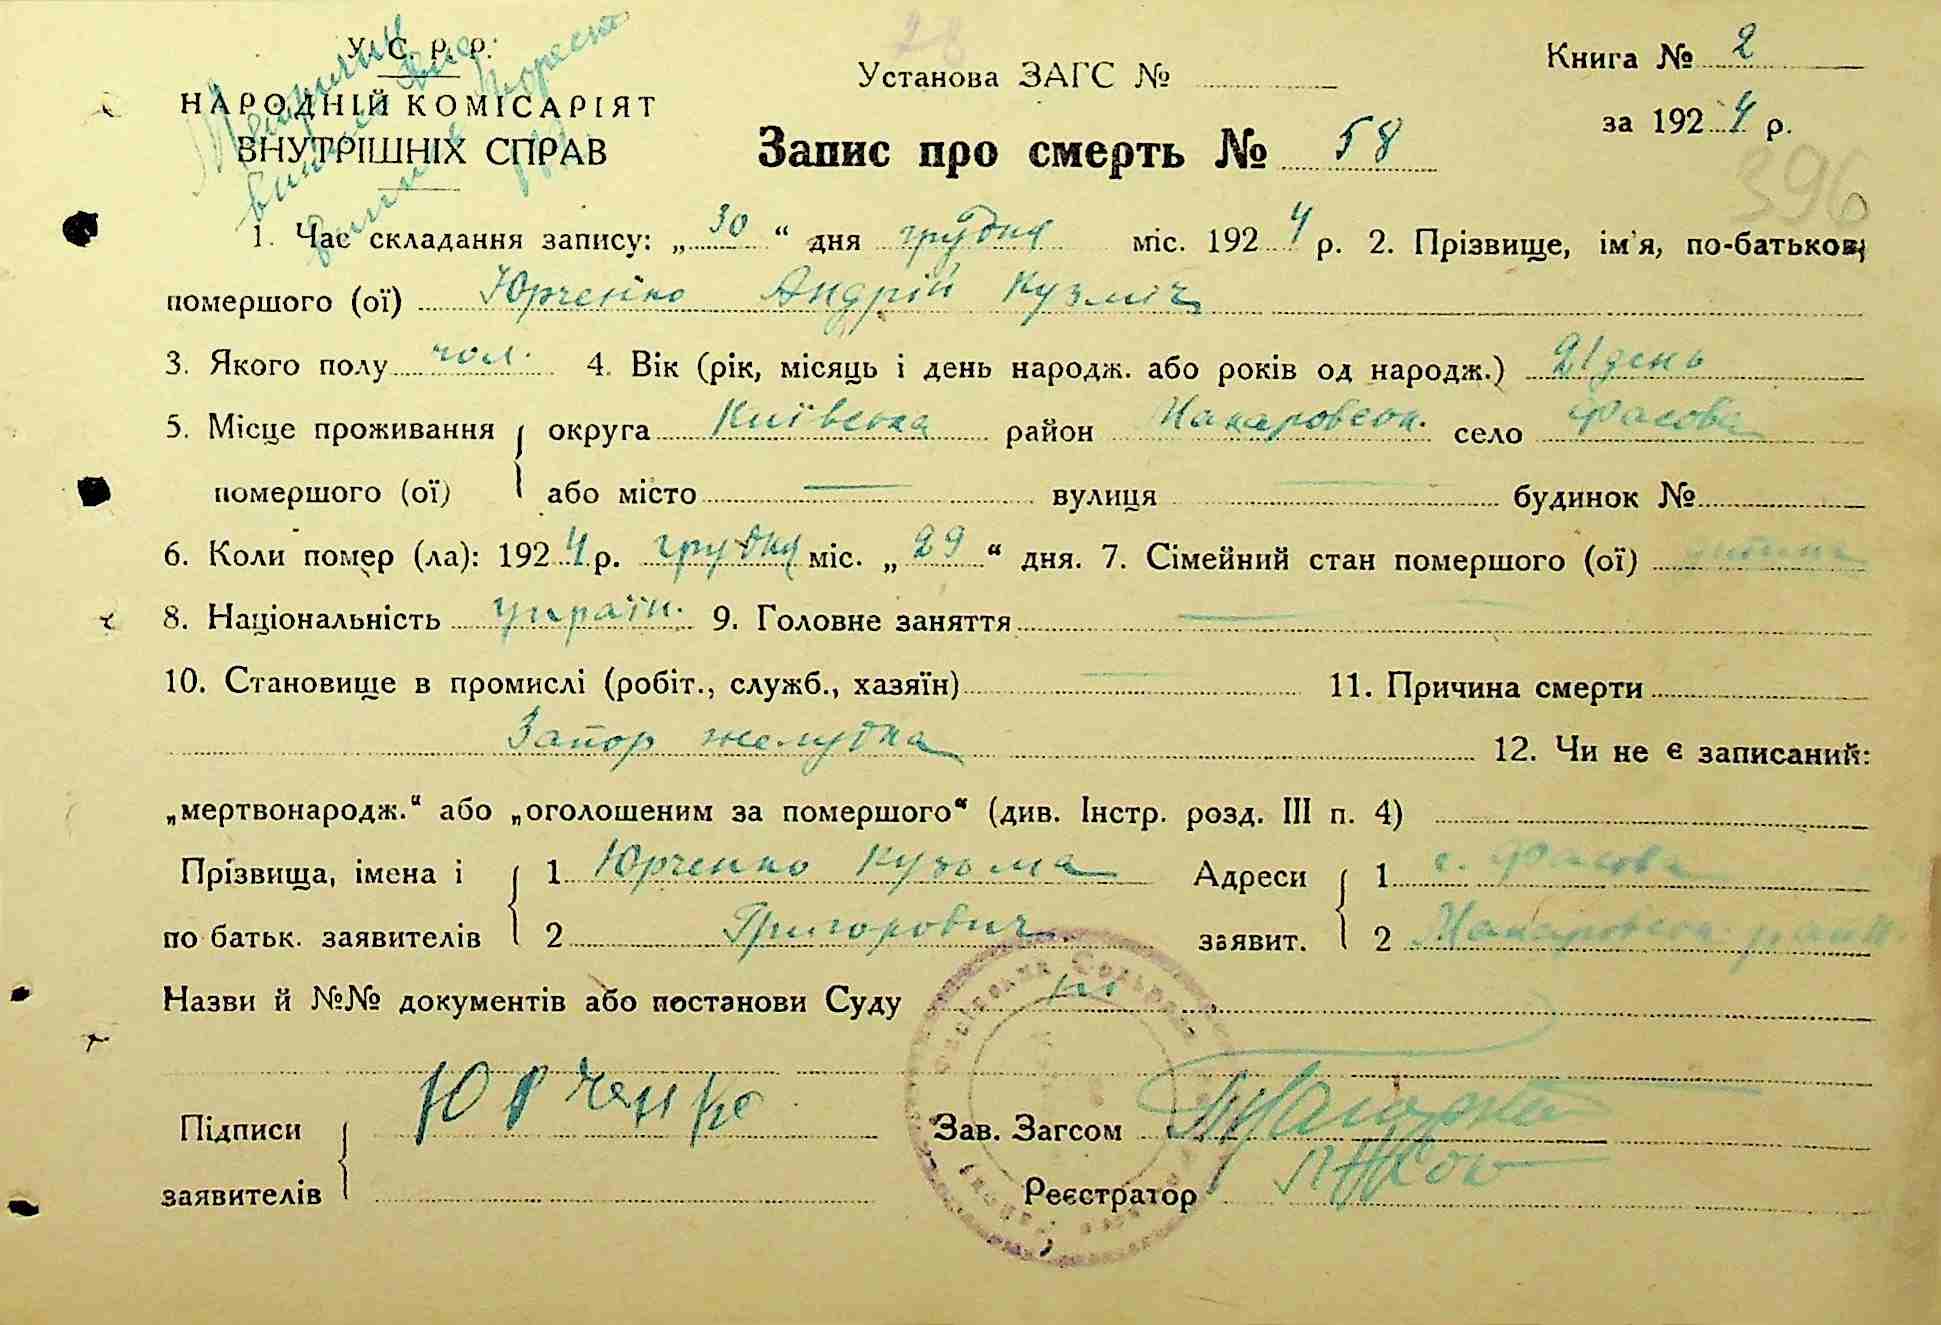 28
У. С. Р. Р.
НАРОДНІЙ КОМІСАРІЯТ
ВНУТРІШНІХ СПРАВ
Установа ЗАГС №
Запис про смерть № 58
Книга № 2
за 1924 р.
396
1. Час складання запису: „30“ дня грудня міс. 1924 р. 2. Прізвище, ім'я, по-батькові
помершого (ої) Юрченко Андрій Кузміч
3. Якого полу чол. 4. Вік (рік, місяць і день народж. або років од народж.) 21 день
5. Місце проживання округа Київська район Макаровськ. село Фасова
помершого (ої) або місто — вулиця — будинок №
6. Коли помер (ла): 1924 р. грудня міс. „29“ дня. 7. Сімейний стан помершого (ої) дитина
8. Національність україн. 9. Головне заняття —
10. Становище в промислі (робіт., служб., хазяїн) — 11. Причина смерти
Запор желудка 12. Чи не є записаний:
„мертвонародж.“ або „оголошеним за помершого“ (див. Інстр. розд. III п. 4)
Прізвища, імена і 1 Юрченко Кузьма Адреси 1 с. Фасова
по батьк. заявителів 2 Григорович заявит. 2 Макаровськ. район.
Назви й №№ документів або постанови Суду
Підписи Юрченко Зав. Загсом
заявителів Реєстратор